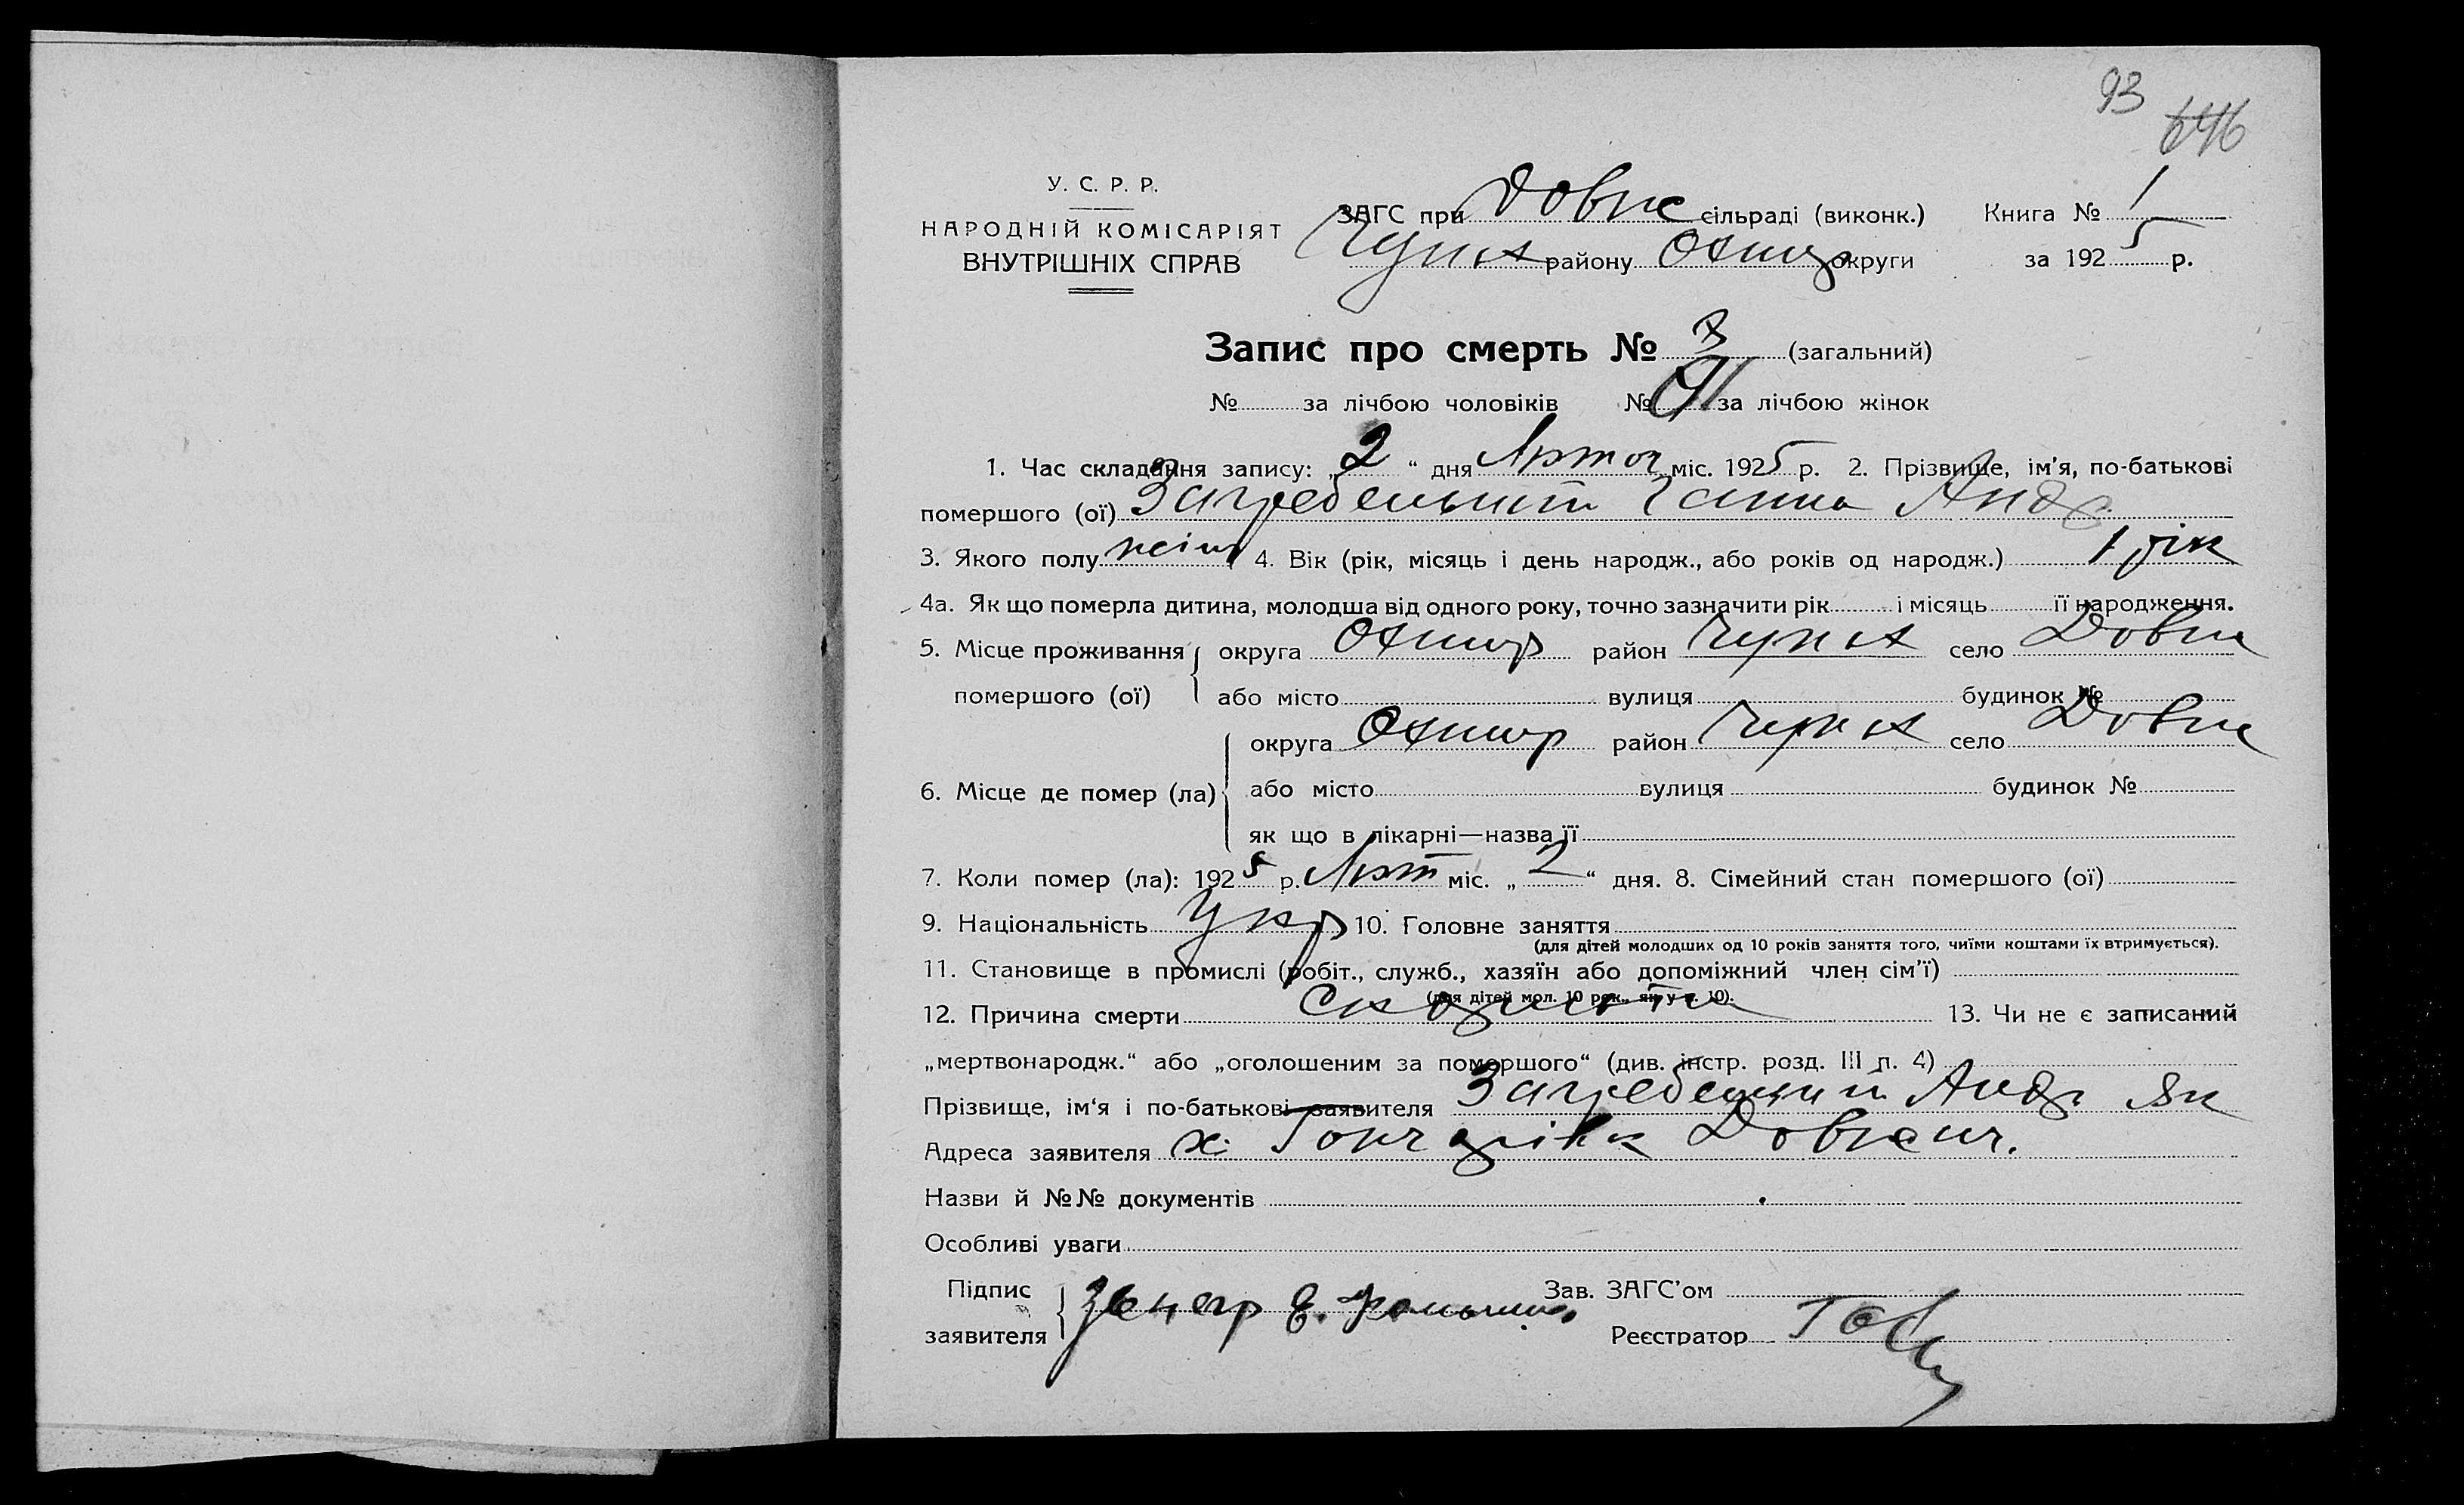 93
646
У. С. Р. Р.
НАРОДНІЙ КОМІСАРІЯТ
ВНУТРІШНІХ СПРАВ
ЗАГС при Довж сільраді (виконк.) Книга № 1
району Охтир округи за 1925 р.
Запис про смерть № 3 (загальний)
№ за лічбою чоловіків № за лічбою жінок
1. Час складання запису: „2“ дня Лютог міс. 1925 р. 2. Прізвище, ім'я, по-батькові
помершого (ої) Загребельний Ганна Андр.
3. Якого полу жіноч 4. Вік (рік, місяць і день народж., або років од народж.) 1 рік
4а. Як що померла дитина, молодша від одного року, точно зазначити рік і місяць її народження.
5. Місце проживання округа Охтир район село Довж
помершого (ої) або місто вулиця будинок №
округа Охтир район село Довж
6. Місце де помер (ла) або місто вулиця будинок №
як що в лікарні—назва її
7. Коли помер (ла): 1925 р. Лют міс. „2“ дня. 8. Сімейний стан помершого (ої)
9. Національність Укр 10. Головне заняття
(для дітей молодших од 10 років заняття того, чиїми коштами їх втримується).
11. Становище в промислі (робіт., служб., хазяїн або допоміжний член сім'ї)
(для дітей мол. 10 рок., як у п. 10).
12. Причина смерти 13. Чи не є записаний
„мертвонародж.“ або „оголошеним за помершого“ (див. інстр. розд. III п. 4)
Прізвище, ім'я і по-батькові заявителя Загребельний Андр Як
Адреса заявителя х.
Назви й №№ документів
Особливі уваги
Підпис Зав. ЗАГС'ом
заявителя Реєстратор